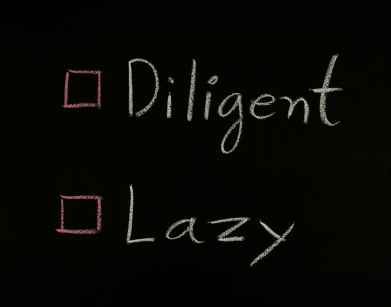 Diligent
Lazy